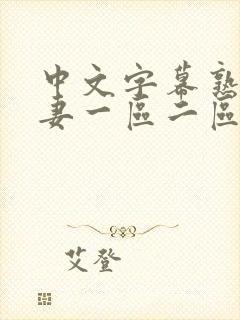 中文字幕熟
妻一區二區
艾登